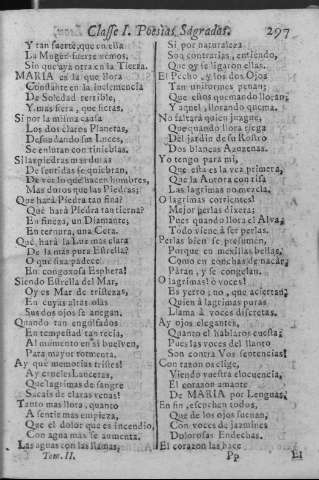 Classe I. Poesias Sagradas. 297
Y tan fuerte, que en ella
La Muger fuerte vemos,
Sin que aya otra en la Tierra.
MARIA es la que llora
Constante en la inclemencia
De Soledad terrible,
Y mas fiera, que fieras.
Si por la misma causa
Los dos claros Planetas,
Desnudando sus Luces,
Se enlutan con tinieblas.
Si las piedras mas duras
De sentidas se quiebran,
De ver lo que hacen hombres,
Mas duros que las Piedras;
Que hará Piedra tan fina?
Què hará Piedra tan tierna?
En fineza, un Diamante;
En ternura, una Cera.
Què hará la Luz mas clara
De la más pura Estrella?
O què fixa padece
En congoxosa Esphera!
Siendo Estrella del Mar,
Oy es Mar de tristezas,
En cuyas altas olas
Sus dos ojos se anegan.
Quando tan engolfados
En tempestad tan recia,
Al momento en si buelven,
Para mayor tormenta.
Ay què memorias tristes!
Ay crueles Lancetas,
Que lagrimas de sangre
Sacais de claras venas!
Tanto mas llora, quanto
A sentir mas empieza,
Que el dolor que es incendio,
Con agua mas se aumenta.
Las aguas con las llamas,
Tom. II.
Si por naturaleza
Son contrarias, entiendo,
Que oy se ligaron ellas.
El Pecho, y los dos Ojos
Tan uniformes penan;
Que ellos quemando lloran;
Y aquel, llorando quema.
No faltará quien juzgue,
Que quando llora riega
Del jardin de su Rostro
Dos blancas Azuzenas.
Yo tengo para mi,
Que esta es la vez primera,
Que la Aurora con risa
Las lagrimas no mezcla.
O lagrimas corrientes!
Mejor perlas dixera;
Pues quando llora el Alva,
Todo viene á ser perlas.
Perlas bien se presumen,
Porque en mexillas bellas,
Como en conchas de nacár,
Pàran, y se congelan.
O lagrimas! ò voces!
Es yerro; no, que aciertan,
Quien à lagrimas puras
Llama à voces discretas.
Ay ojos elegantes,
Quanto el hablaros cuesta;
Pues las voces del llanto
Son contra Vos sentencias!
Con razon os elige,
Viendo vuestra eloquencia,
El corazon amante
De MARIA por Lenguas.
En fin, escuchen todos,
Que de los ojos suenan,
Con voces de jazmines
Dolorosas Endechas.
El corazon las hace
Pp El